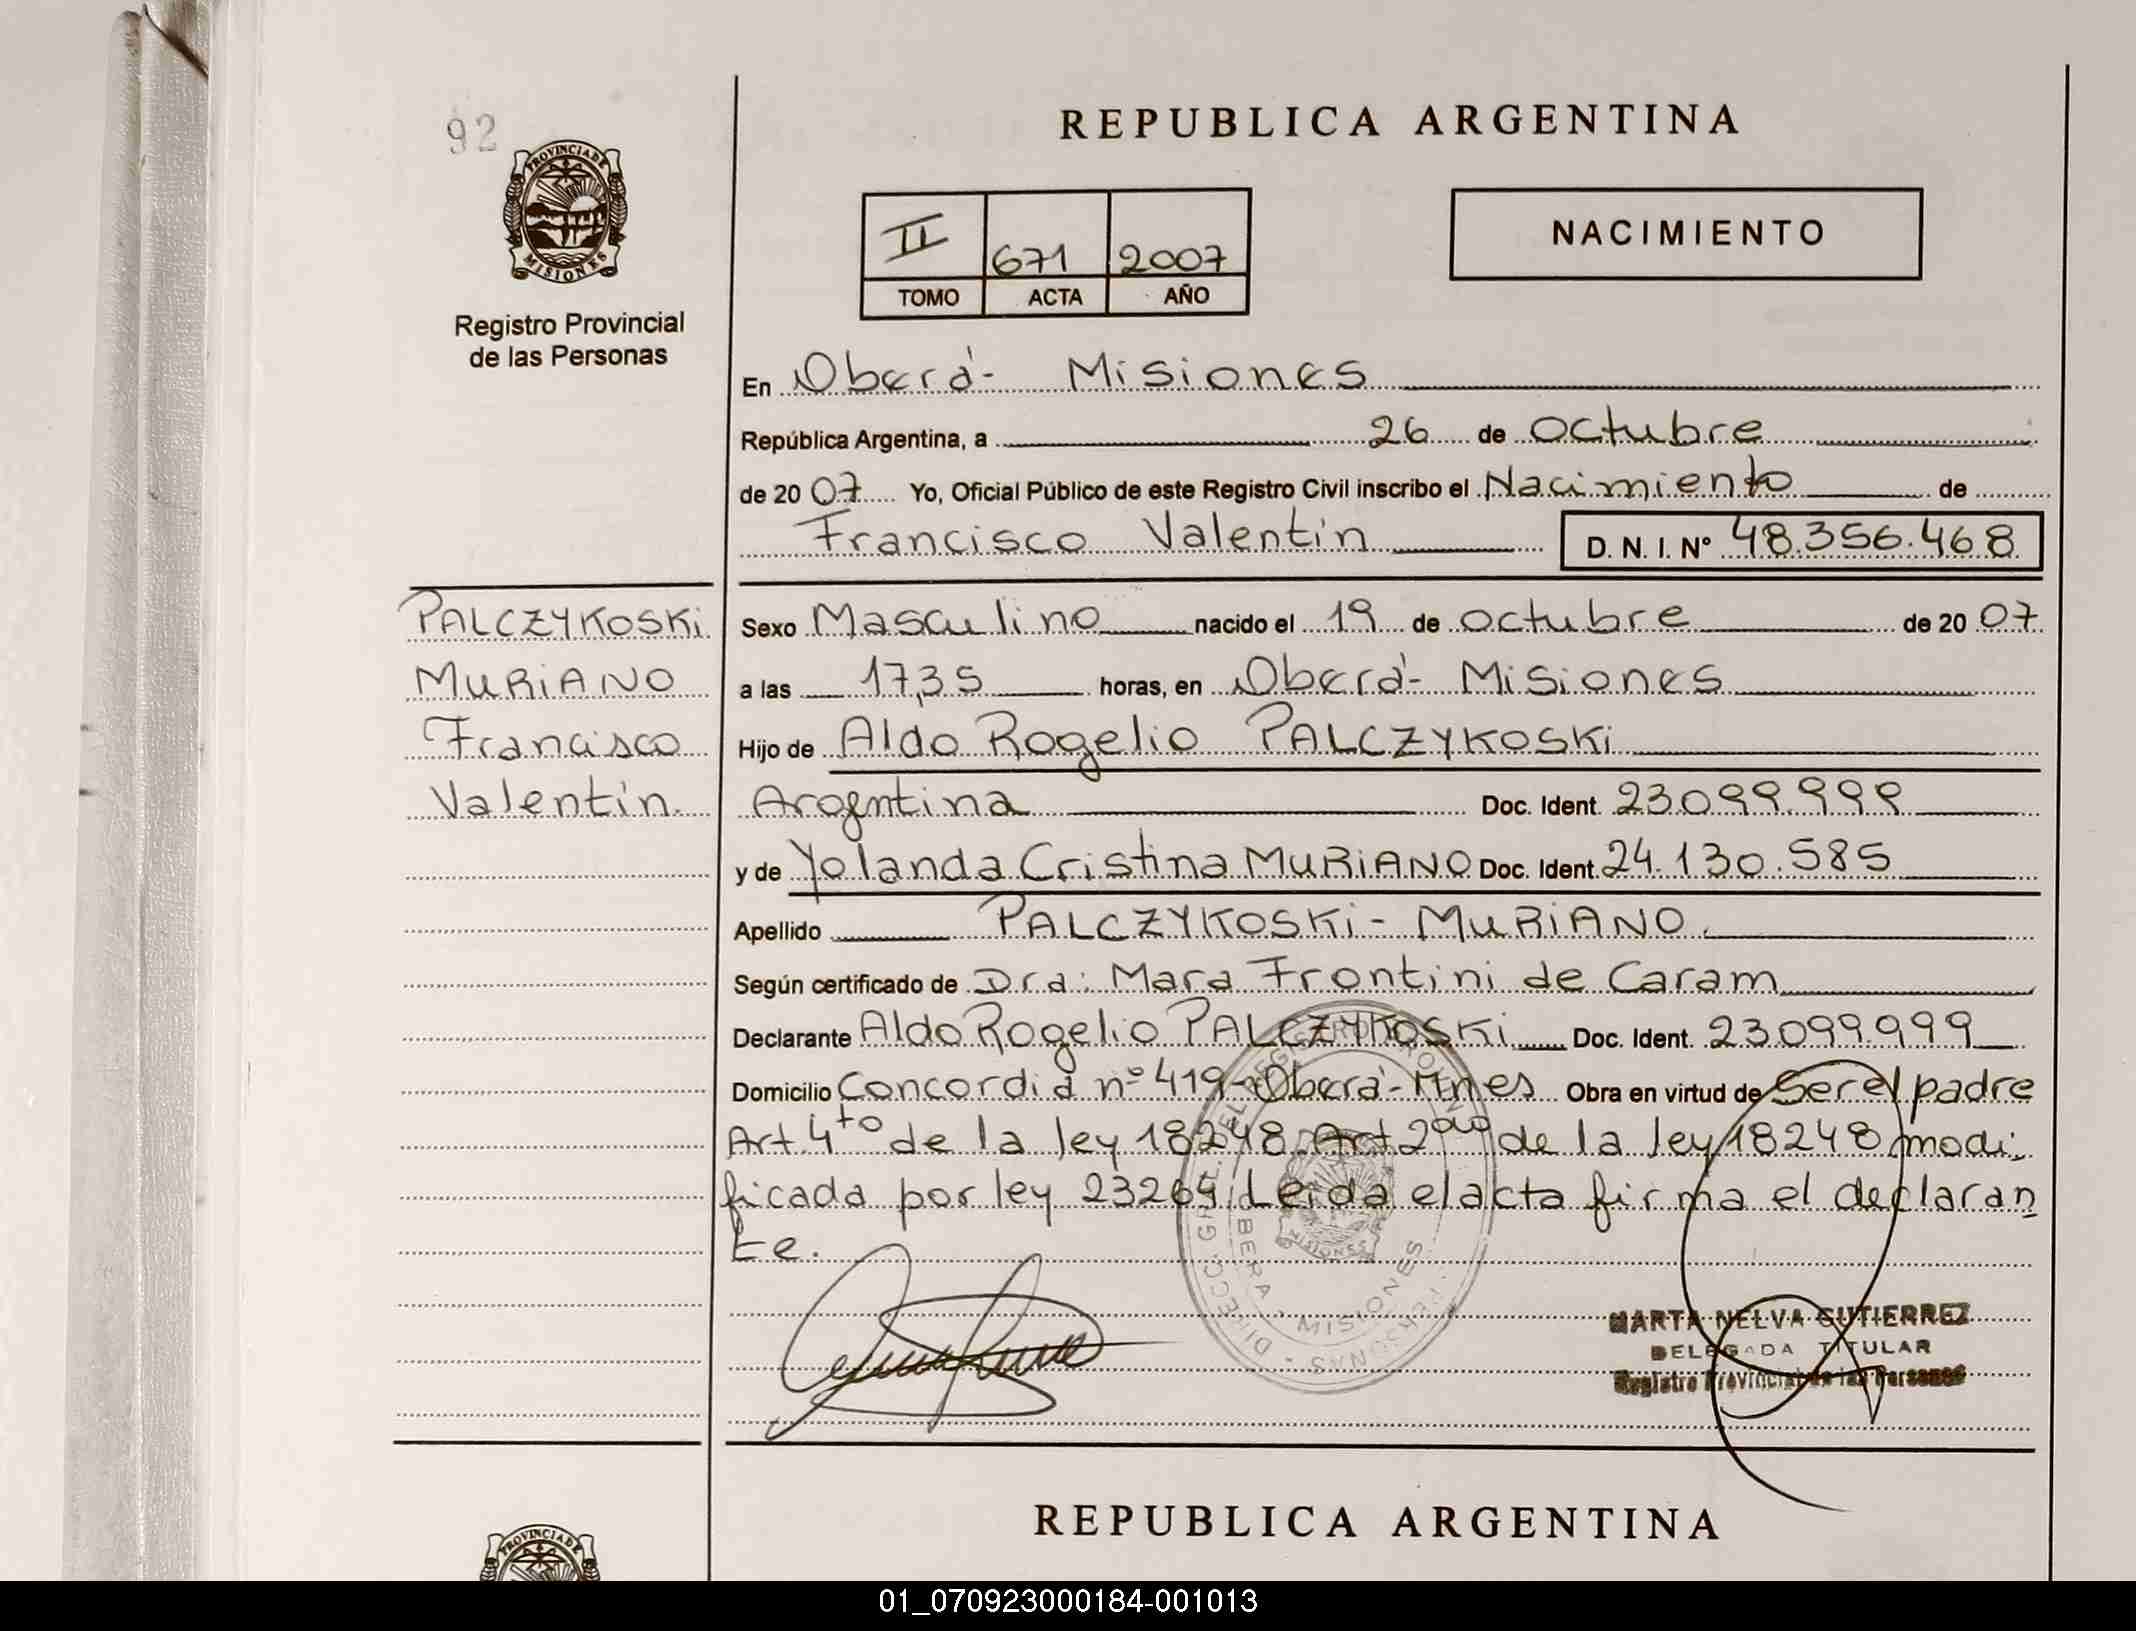 92
PROVINCIA DE
MISIONES
Registro Provincial
de las Personas
REPUBLICA ARGENTINA
II 671 2007
TOMO ACTA AÑO
NACIMIENTO
En Oberá- Misiones
República Argentina, a 26 de octubre
de 2007 Yo, Oficial Público de este Registro Civil inscribo el Nacimiento de
Francisco Valentín D. N. I. Nº 48.356.468
PALCZYKOSKi
MURiANO
Francisco
Valentín.
Sexo Masculino nacido el 19 de octubre de 2007
a las 17,35 horas, en Oberá- Misiones
Hijo de Aldo Rogelio PALCZYKOSKi
Argentina Doc. Ident. 23.099.999
y de Yolanda Cristina MURiANO Doc. Ident. 24.130.585
Apellido PALCZYKOSKi - MURiANO.
Según certificado de Dra: Mara Frontini de Caram
Declarante Aldo Rogelio PALCZYKOSKi Doc. Ident. 23.099.999
Domicilio Concordia nº 419-Oberá-Mnes Obra en virtud de Ser el padre
Art. 4to de la ley 18248. Art 2do de la ley 18248 modi-
ficada por ley 23264. Leída el acta firma el declaran
te.
DIRECC. GRAL. DEL REGISTRO PROVINCIAL PERSONAS
OBERA - MISIONES
MISIONES
MARTA NELVA GUTIERREZ
DELEGADA TITULAR
Registro Provincial de las Personas
PROVINCIA DE
REPUBLICA ARGENTINA
01_070923000184-001013